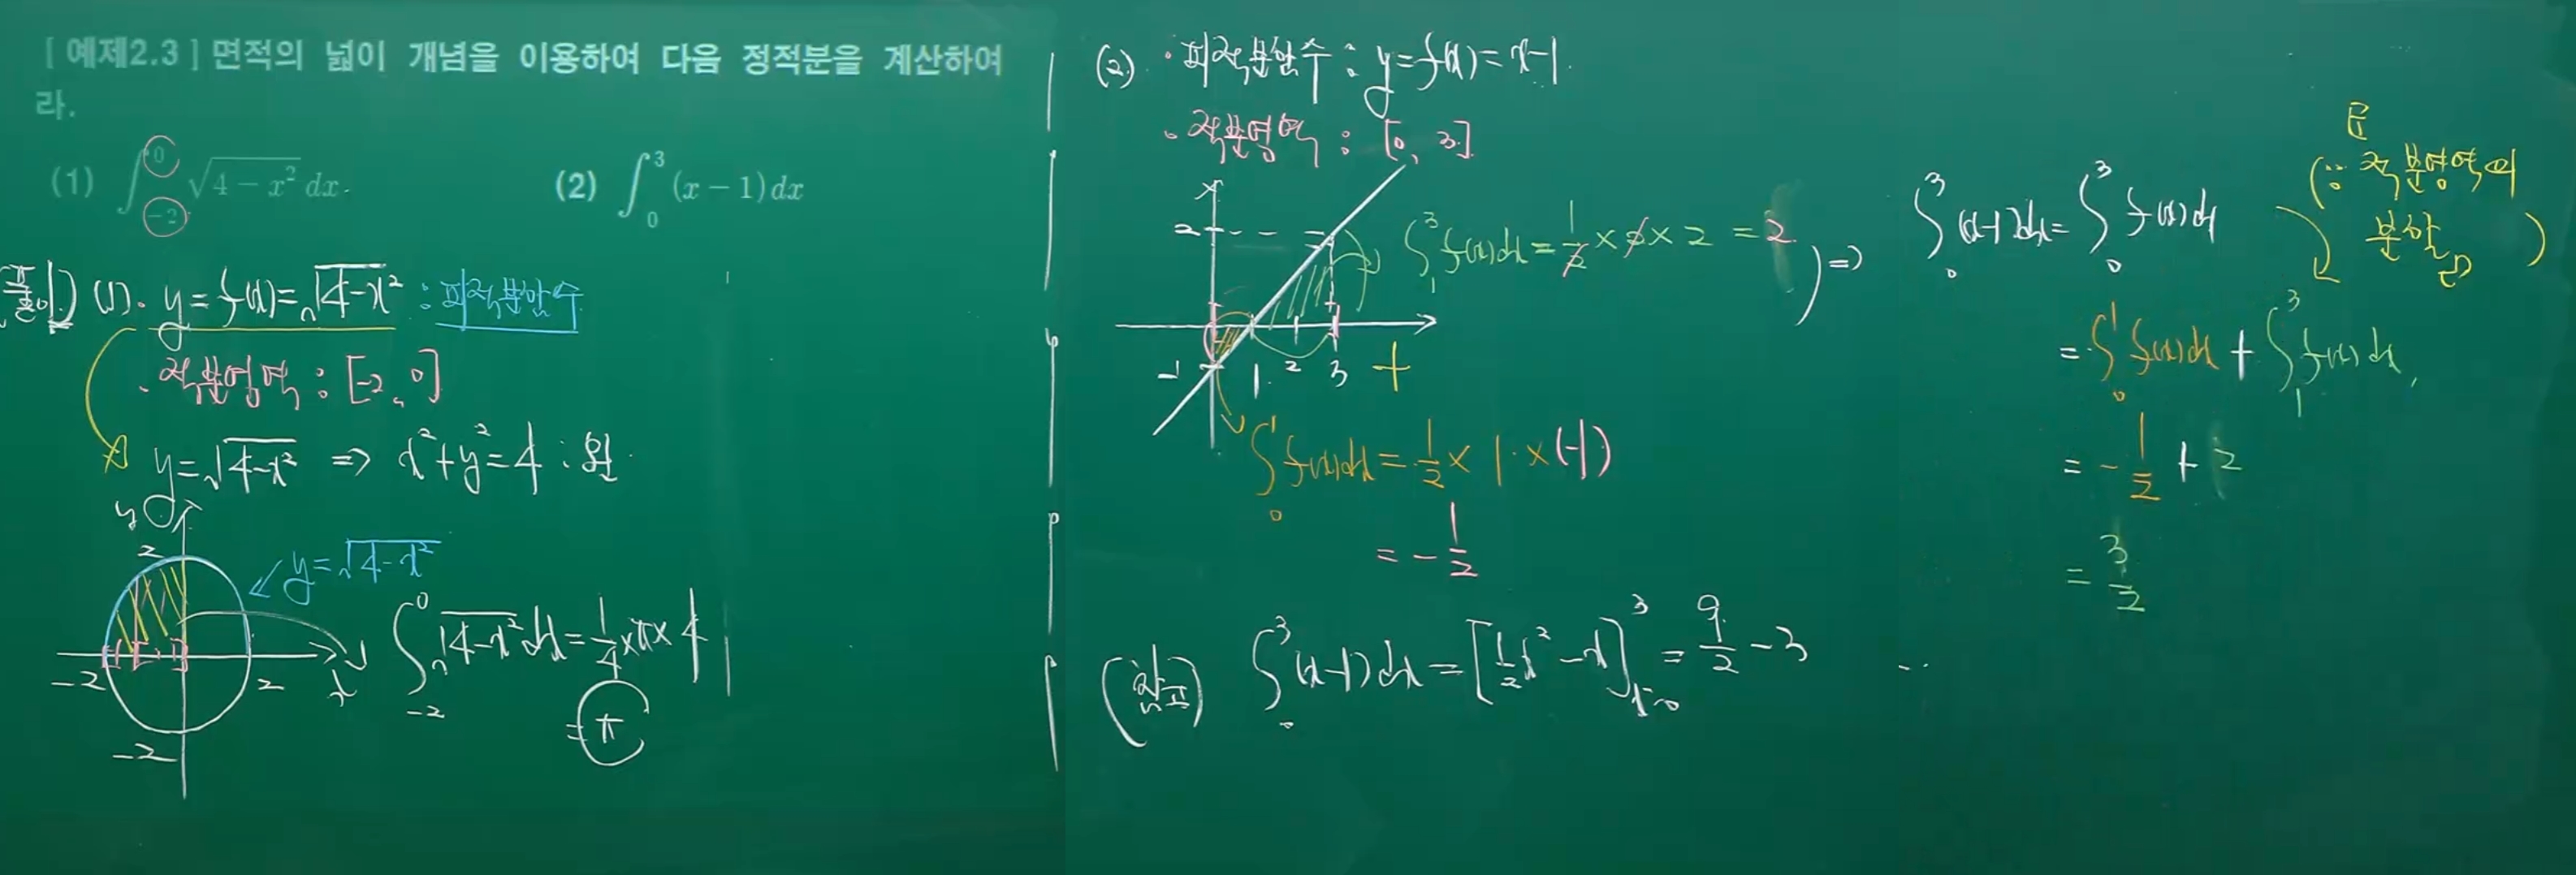 [ 예제2.3 ] 면적의 넓이 개념을 이용하여 다음 정적분을 계산하여
라.
(1) ∫_{-2}^{0} √(4-x²) dx.
(2) ∫_{0}^{3} (x-1) dx
(풀이) (1). y = f(x) = √(4-x²) : 피적분함수
. 적분영역 : [-2, 0]
y = √(4-x²) ⇒ x²+y²=4 : 원.
y
2
y = √(4-x²)
-2 2 x
-2
∫_{-2}^{0} √(4-x²) dx = 1/4 × π × 4
= π
(2) · 피적분함수 : y = f(x) = x-1.
· 적분영역 : [0, 3]
2
-1 1 2 3 +
∫_{1}^{3} f(x)dx = 1/2 × 2 × 2 = 2
∫_{0}^{1} f(x)dx = 1/2 × 1 × (-1)
= - 1/2
⇒ ∫_{0}^{3} (x-1)dx = ∫_{0}^{3} f(x)dx
(∵ 적분영역의
분할
)
= ∫_{0}^{1} f(x)dx + ∫_{1}^{3} f(x)dx,
= - 1/2 + 2
= 3/2
(참고) ∫_{0}^{3} (x-1) dx = [1/2 x² - x]_{x=0}^{3} = 9/2 - 3